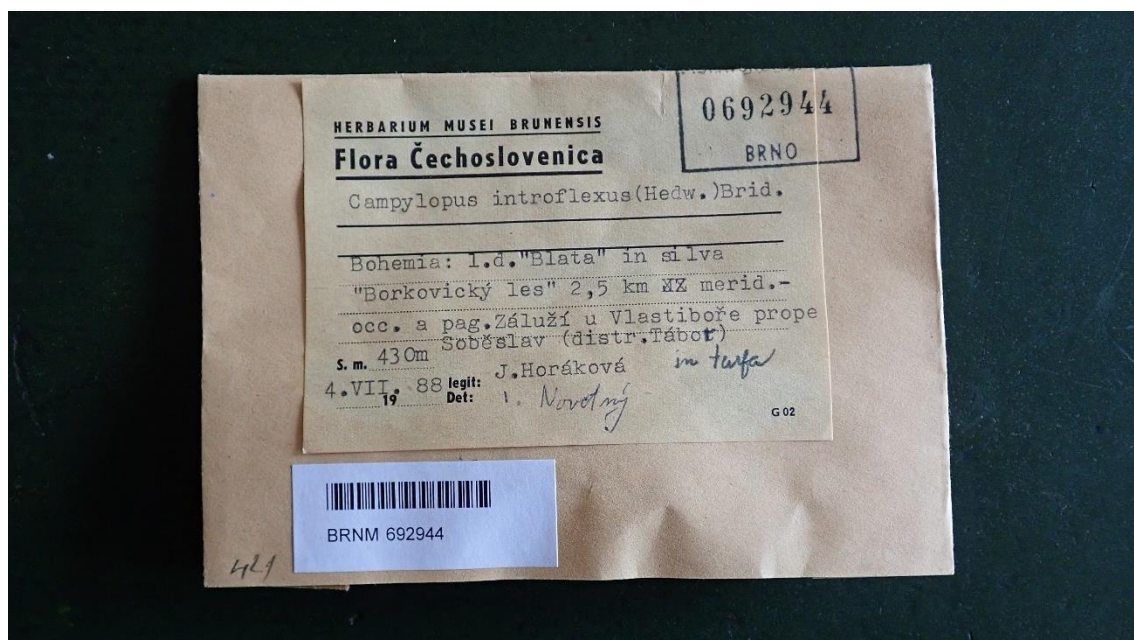 HERBARIUM MUSEI BRUNENSIS
Flora Čechoslovenica
0692944
BRNO
Campylopus introflexus(Hedw.)Brid.
Bohemia: l.d."Blata" in silva
"Borkovický les" 2,5 km merid.-
occ. a pag.Záluží u Vlastiboře prope
Soběslav (distr.Tábor)
S. m. 430m
in turfa
4.VII. 19 88 legit: J.Horáková
Det: I. Novotný
G 02
BRNM 692944
421